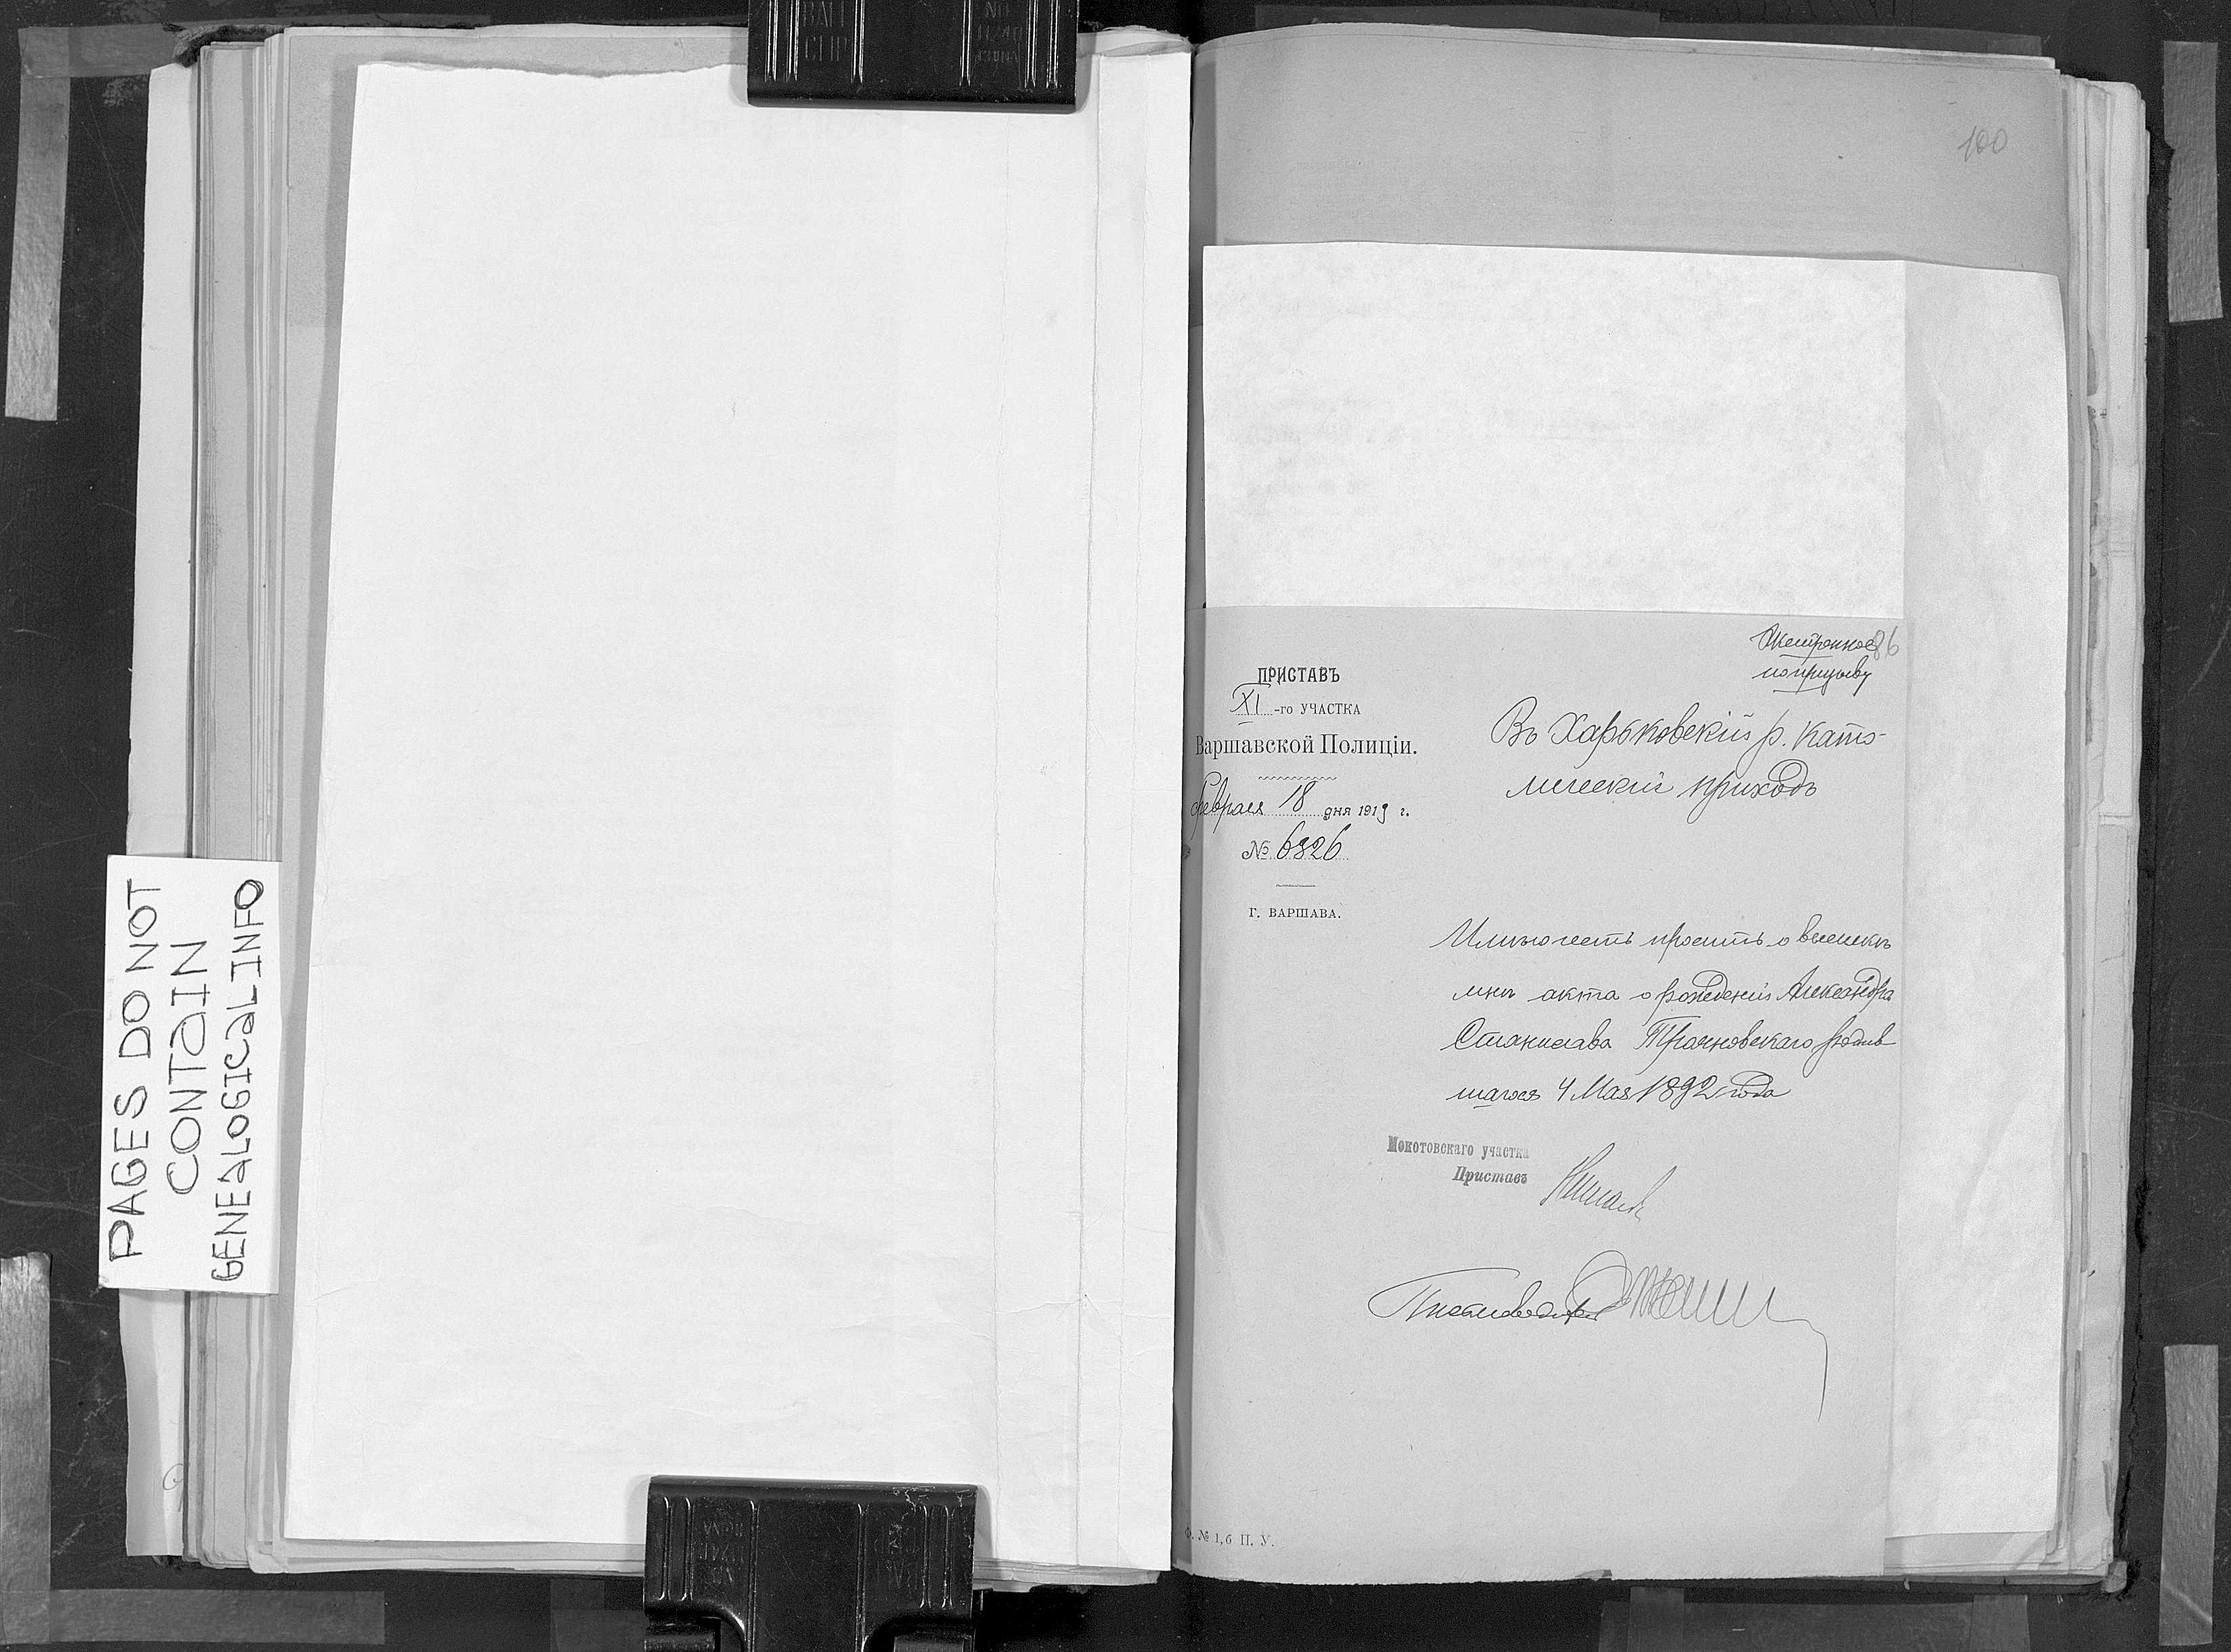 PAGES DO NOT
CONTAIN
GENEALOGICAL INFO
100
86
по призыву
ПРИСТАВЪ
XI -го УЧАСТКА
Варшавской Полиціи.
Февраля 18 дня 1913 г.
№ 6826
Г. ВАРШАВА.
Въ Харьковскій р. като-
лическій приходъ
Имѣю честь просить о высылкѣ
мнѣ акта о рожденіи Александра
Станислава Трояновскаго родив
шагося 4 Мая 1892 года
Мокотовскаго участка
Приставъ
Письмоводитель
Ф. № 1,б П. У.